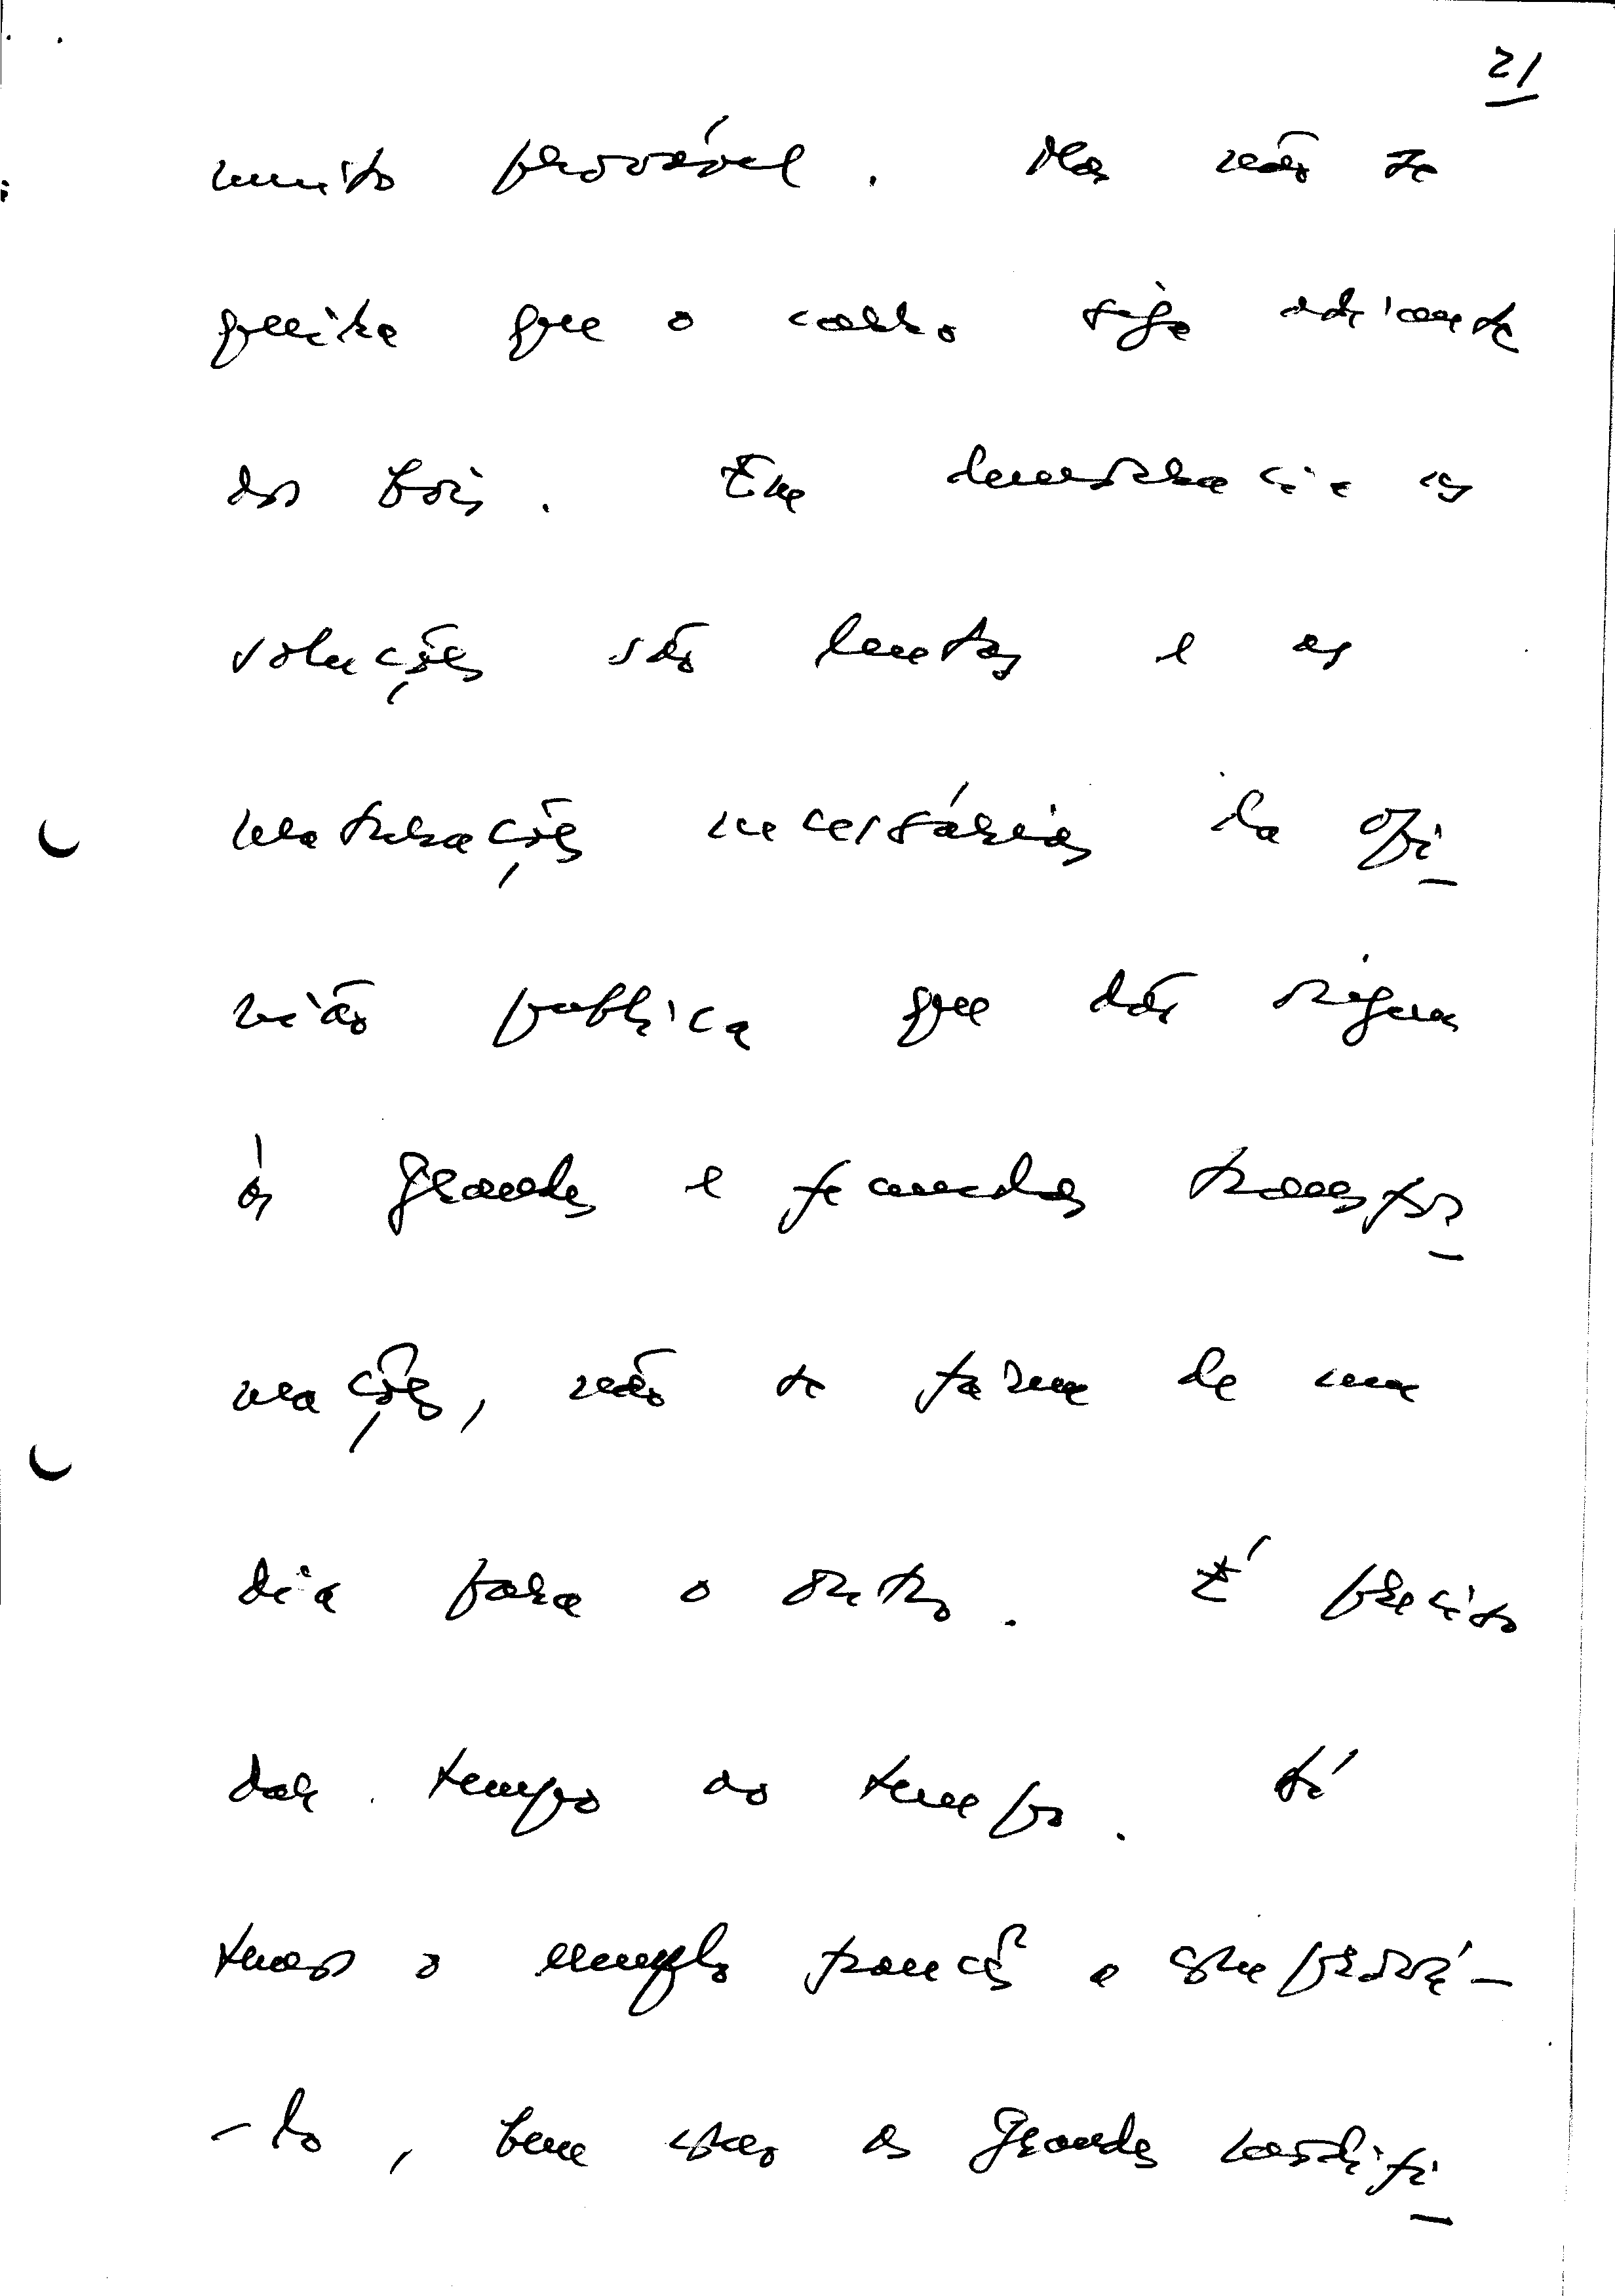 21
muito provável. Mas não se
queira que o carro siga adiante
dos bois. Em democracia as
soluções são lentas e as
maturações necessárias da opi
nião publica que dão origem
às grandes e fecundas transfor
mações, não se fazem de um
dia para o outro. É preciso
dar tempo ao tempo. Aí
temos o exemplo francês a comprová-
-lo, bem como as grandes modifi